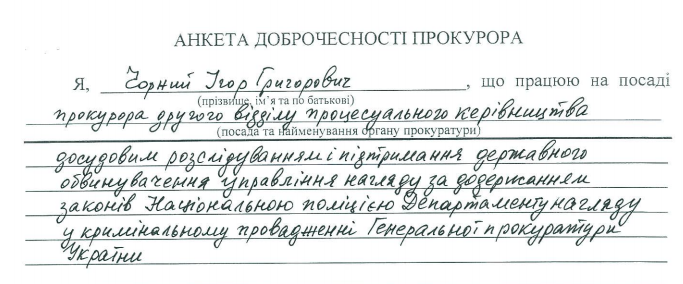 АНКЕТА ДОБРОЧЕСНОСТІ ПРОКУРОРА
Я, Чорний Ігор Григорович, що працюю на посаді
(прізвище, ім’я та по батькові)
прокурора другого відділу процесуального керівництва
(посада та найменування органу прокуратури)
досудовим розслідуванням і підтримання державного
обвинувачення управління нагляду за додержанням
законів Національною поліцією Департаменту нагляду
у кримінальному провадженні Генеральної прокуратури
України